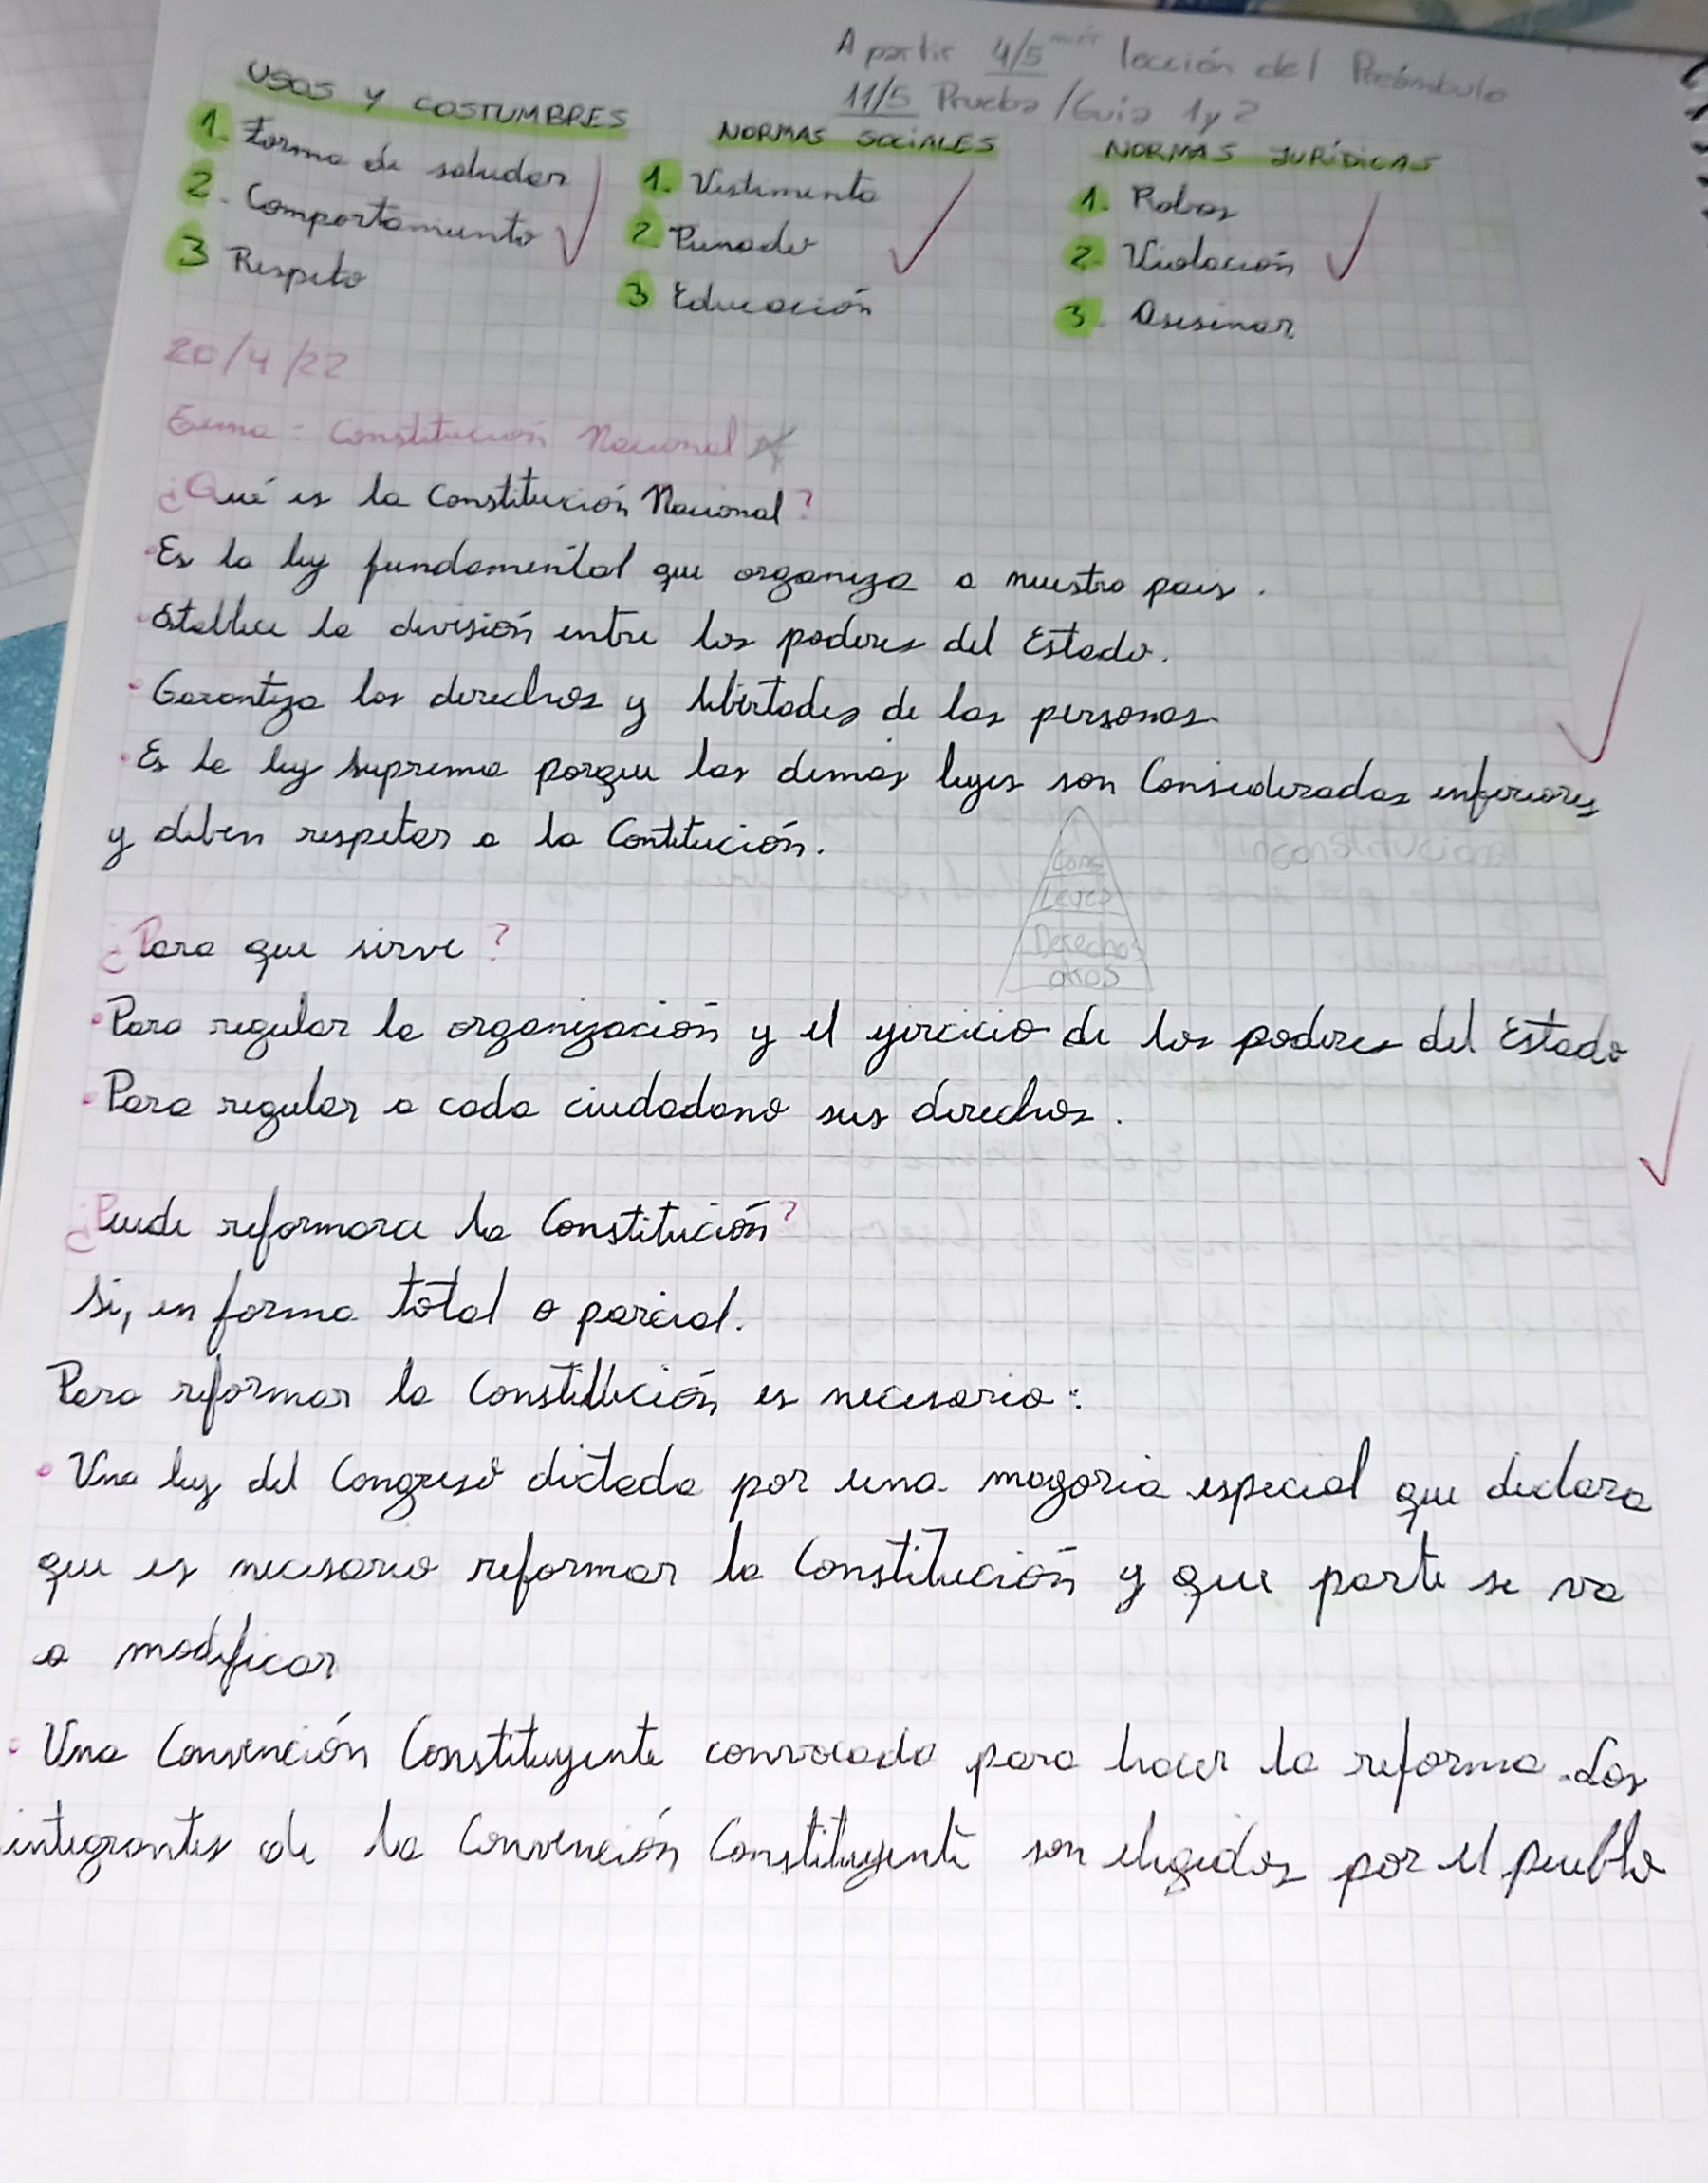 A partir 4/5 lección del Preámbulo
11/5 Prueba / Guia 1 y 2
USOS Y COSTUMBRES
1. Forma de saludar
2. Comportamiento
3 Respeto
NORMAS SOCIALES
1. Vestimenta
2. Peinado
3 Educación
NORMAS JURÍDICAS
1. Robos
2. Violación
3. Asesinar
20/4/22
Tema: Constitución Nacional
¿Qué es la Constitución Nacional?
•Es la ley fundamental que organiza a nuestro pais.
•Establece la división entre los poderes del Estado.
•Garantiza los derechos y libertades de las personas.
•Es la ley suprema porque las demás leyes son Consideradas inferiores
y deben respetar a la Contitución.
inconstitucional
Cons
Leyes
Derechos
otros
¿Para que sirve?
•Para regular la organización y el ejercicio de los poderes del Estado
•Para regular a cada ciudadano sus derechos.
¿Puede reformarce la Constitución?
Si, en forma total o parcial.
Para reformar la Constitución es necesario:
•Una ley del Congreso dictada por una mayoría especial que declara
que es necesario reformar la Constitución y que parte se va
a modificar
•Una Convención Constituyente convocada para hacer la reforma. Los
integrantes de la Convención Constituyente son elegidos por el pueblo